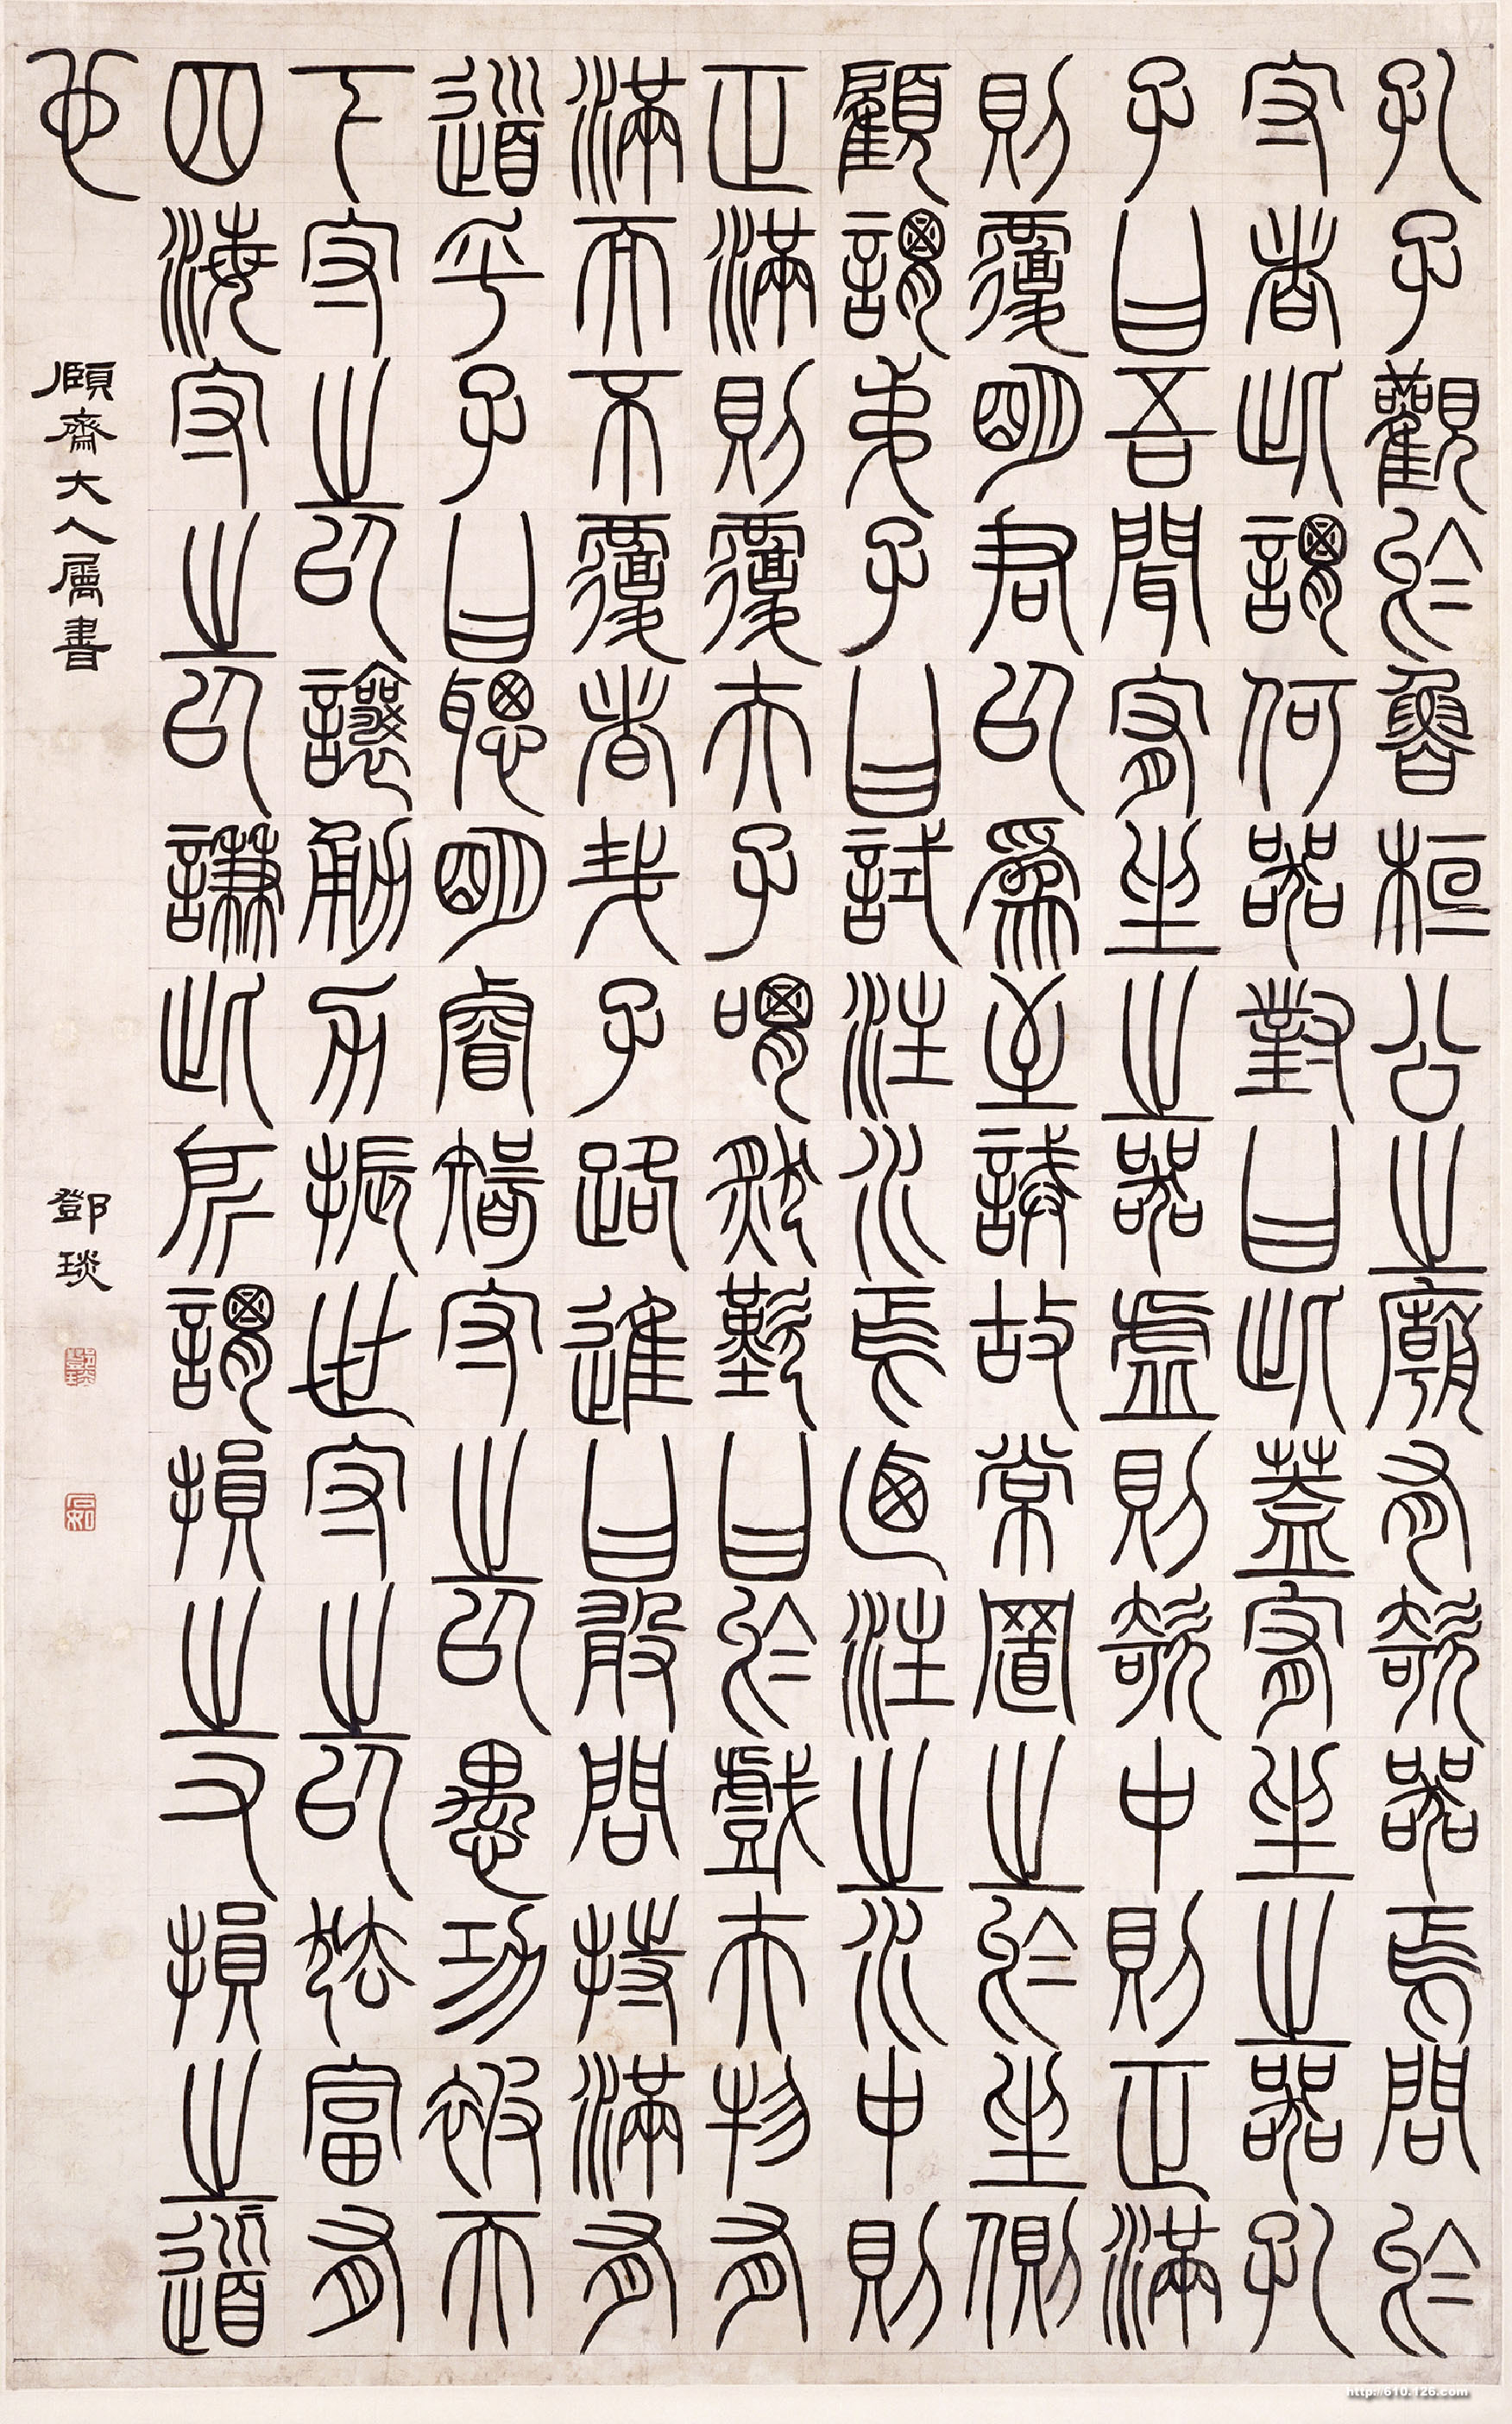 孔子觀於魯桓公之廟有欹器焉問於
守者此謂何器對曰此蓋宥坐之器孔
子曰吾聞宥坐之器虛則欹中則正滿
則覆明君以為至誡故常置之於坐側
顧謂弟子曰試注水焉乃注之水中則
正滿則覆夫子喟然歎曰於戲夫物有
滿而不覆者哉子路進曰敢問持滿有
道乎子曰聰明睿智守之以愚功被天
下守之以讓勇力振世守之以怯富有
四海守之以謙此所謂損之又損之道
也
頤齋大人屬書
鄧琰
鄧琰
石如
http://610.126.com